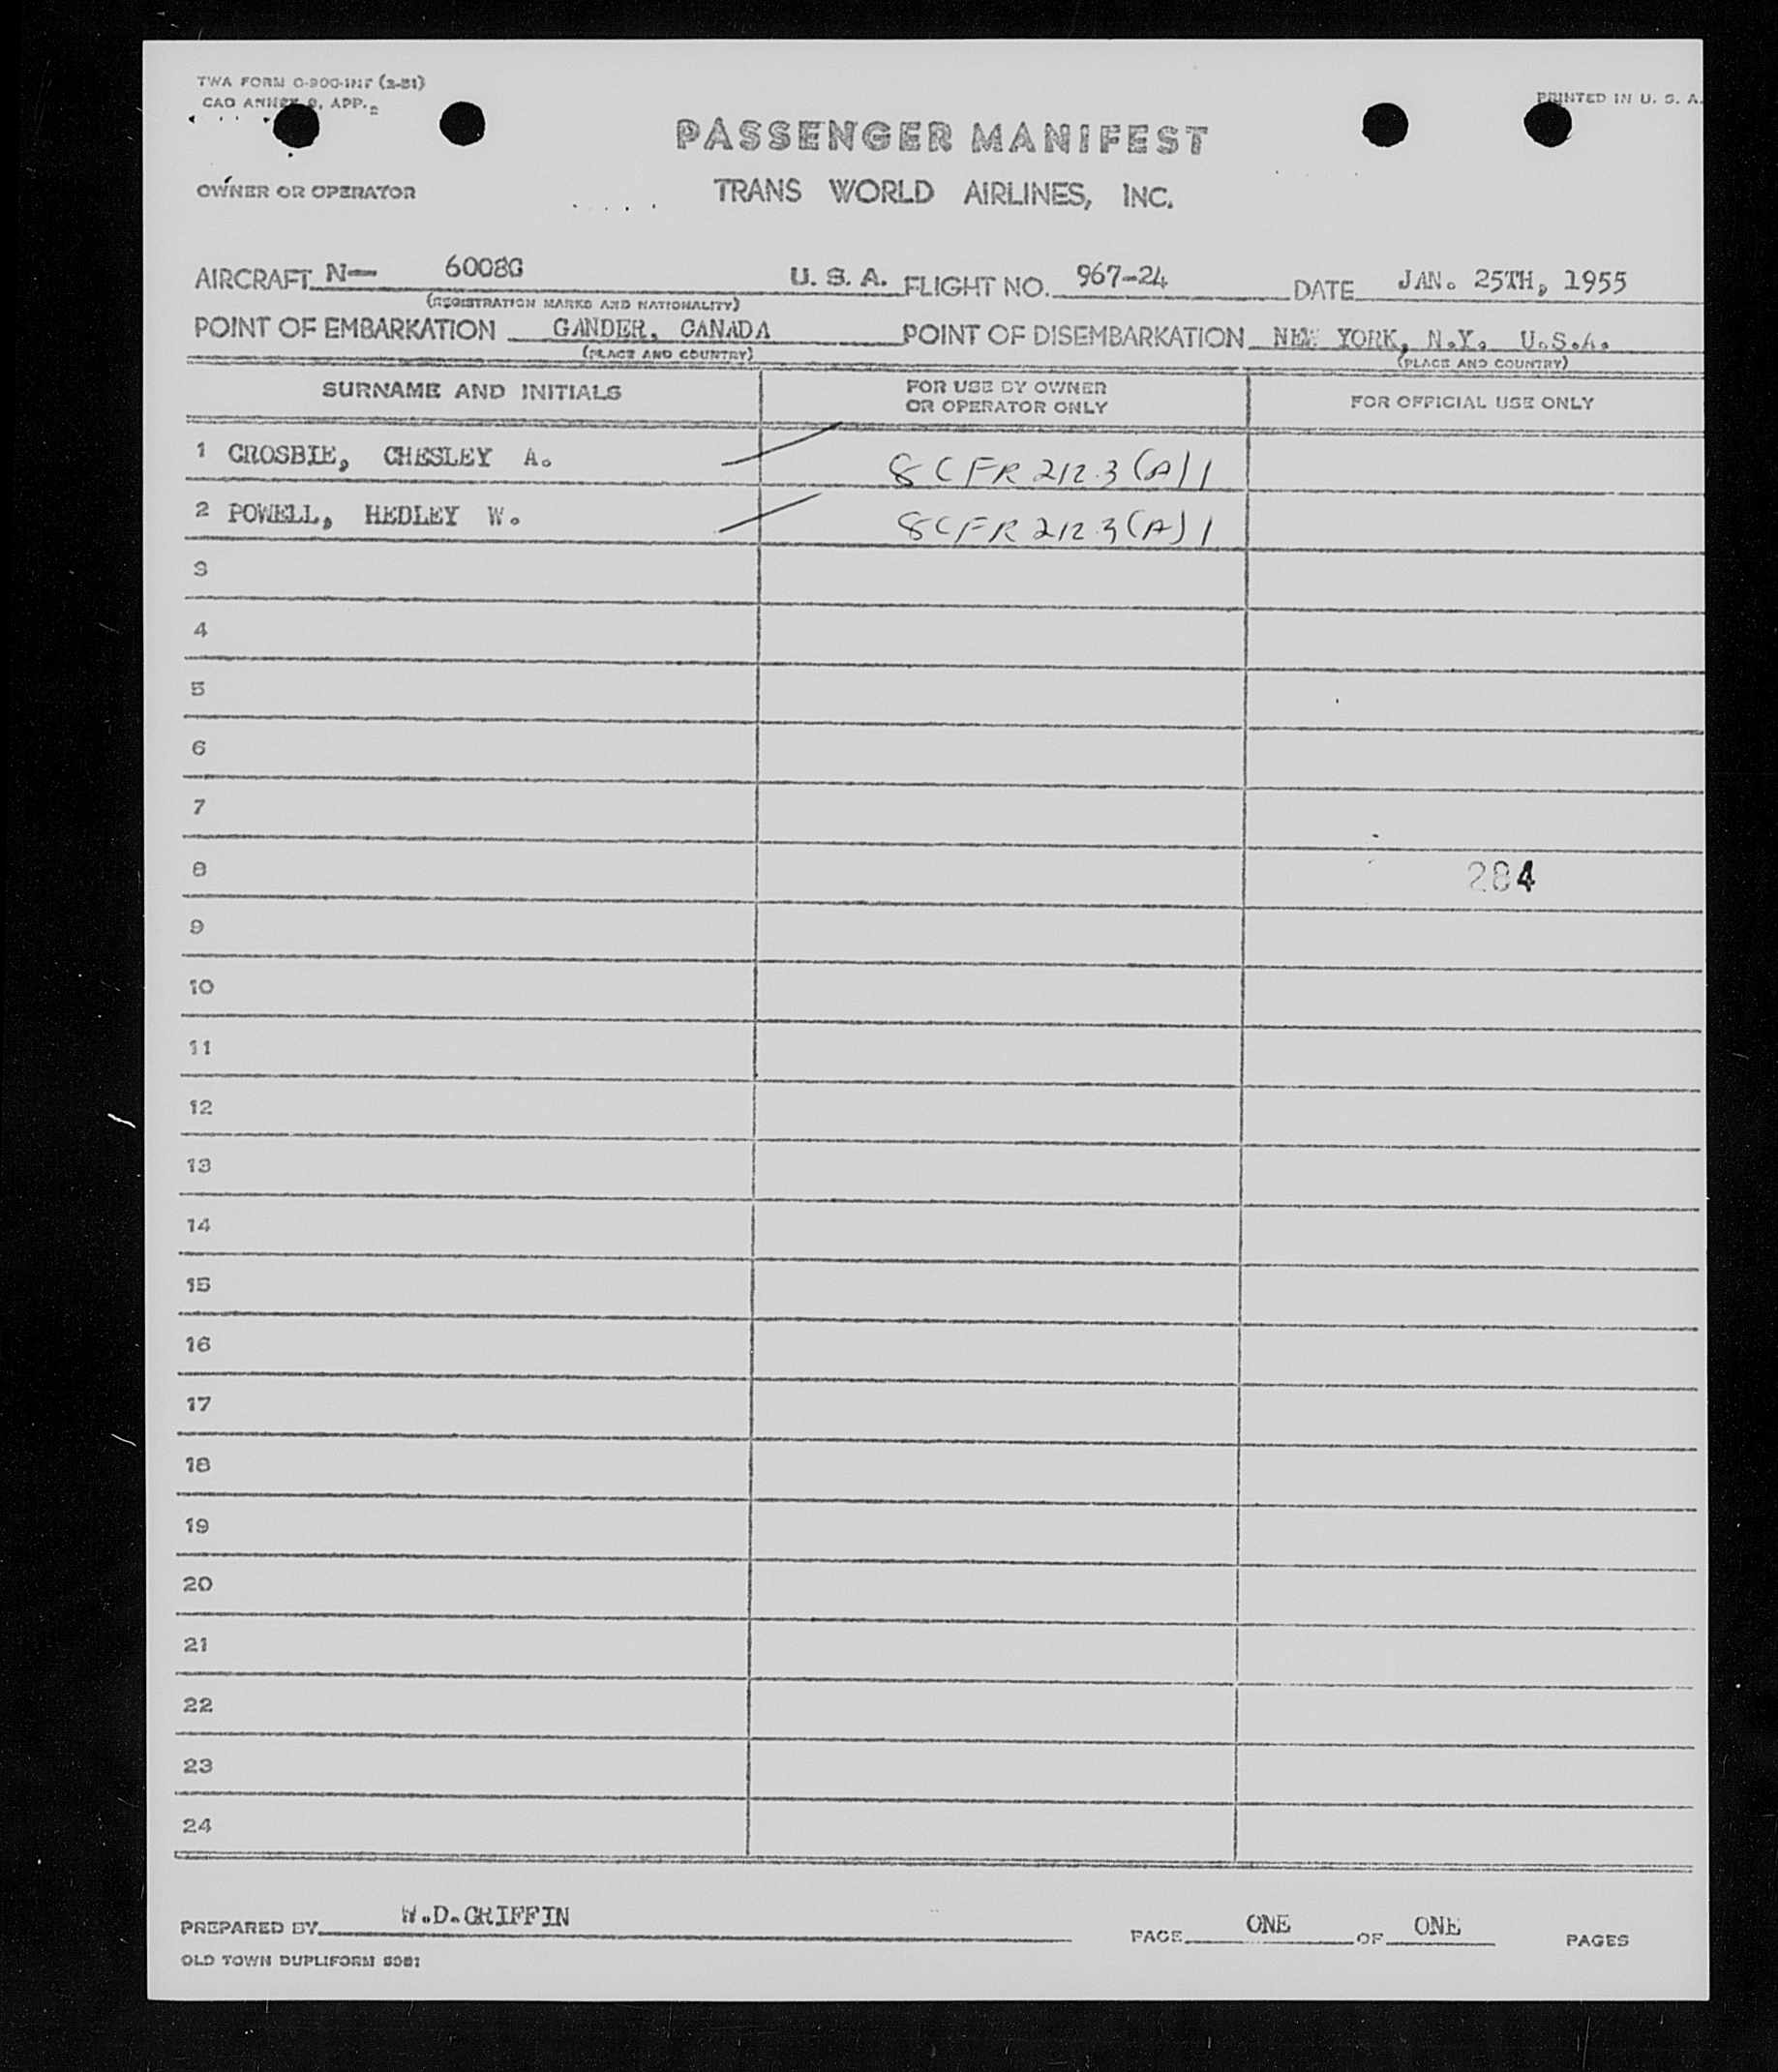 TWA FORM O-900-INT (2-51)
PRINTED IN U. S. A.
PASSENGER MANIFEST
OWNER OR OPERATOR
TRANS WORLD AIRLINES, INC.
AIRCRAFT N— 6008C U. S. A. FLIGHT NO. 967-24 DATE JAN. 25TH, 1955
(REGISTRATION MARKS AND NATIONALITY)
POINT OF EMBARKATION GANDER, CANADA POINT OF DISEMBARKATION NEW YORK, N.Y. U.S.A.
(PLACE AND COUNTRY) (PLACE AND COUNTRY)
SURNAME AND INITIALS
FOR USE BY OWNER
OR OPERATOR ONLY
FOR OFFICIAL USE ONLY
1 CROSBIE, CHESLEY A. 8 CFR 212.3 (A) 1
2 POWELL, HEDLEY W. 8 CFR 212.3 (A) 1
3
4
5
6
7
8 284
9
10
11
12
13
14
15
16
17
18
19
20
21
22
23
24
PREPARED BY W.D.GRIFFIN PAGE ONE OF ONE PAGES
OLD TOWN DUPLIFORM